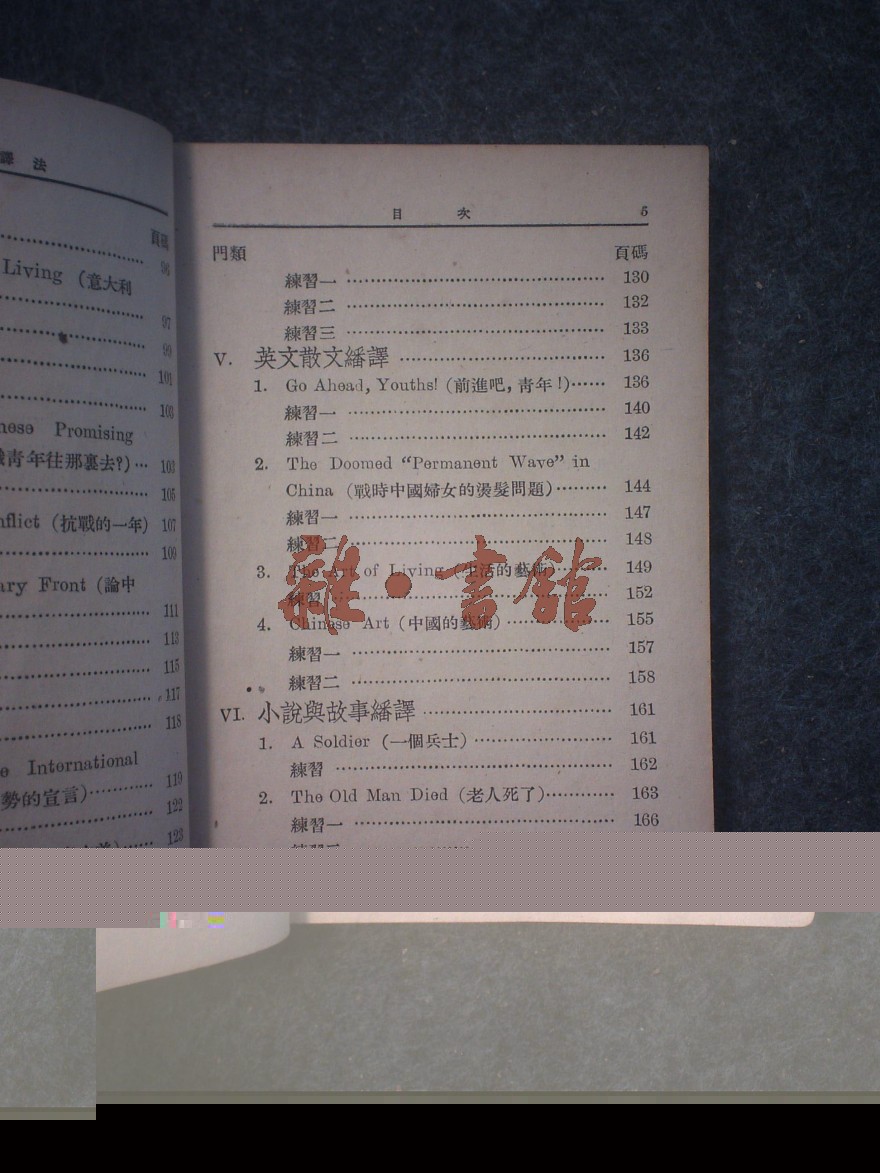 譯 法
頁碼
98
Living (意大利
97
99
101
103
nese Promising
青年往那裏去?)… 103
105
nflict (抗戰的一年) 107
109
ary Front (論中
111
113
115
117
118
e International
勢的宣言)………… 119
122
123
目 次 5
門類 頁碼
練習一 ………… 130
練習二 ………… 132
練習三 ………… 133
V. 英文散文繙譯 ………… 136
1. Go Ahead, Youths! (前進吧, 靑年!)…… 136
練習一 ………… 140
練習二 ………… 142
2. The Doomed “Permanent Wave” in
China (戰時中國婦女的燙髮問題)……… 144
練習一 ………… 147
練習二 ………… 148
3. The Art of Living (生活的藝術)……… 149
練習 ………… 152
4. Chinese Art (中國的藝術) ………… 155
練習一 ………… 157
練習二 ………… 158
VI. 小說與故事繙譯 ………… 161
1. A Soldier (一個兵士) ………… 161
練習 ………… 162
2. The Old Man Died (老人死了)………… 163
練習一 ………… 166
雜·書館